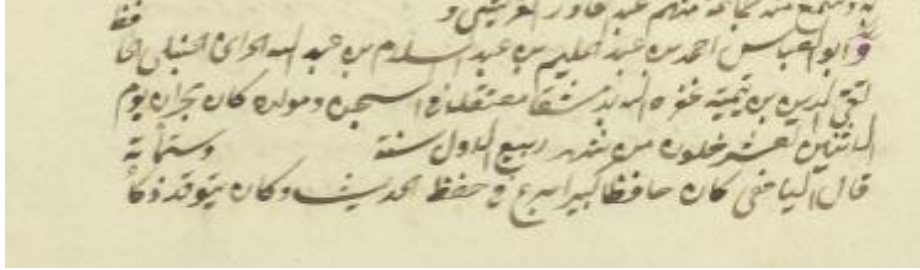 منه جماعة منهم عبد القادر القرشي و
وابو العباس احمد بن عبد الحليم بن عبد السلام بن عبد الله الحراني الحنبلي الحافظ
تقي الدين بن تيمية غفر له بدمشق معتقلا في السجن ومولده كان بحران يوم
الاثنين لعشر خلون من شهر ربيع الاول سنة وستمائة
قال اليافعي كان حافظا كبيرا برع في حفظ الحديث وكان يتوقد ذكاء